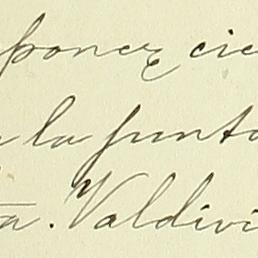 poner cie
la punto
ta. Valdivi